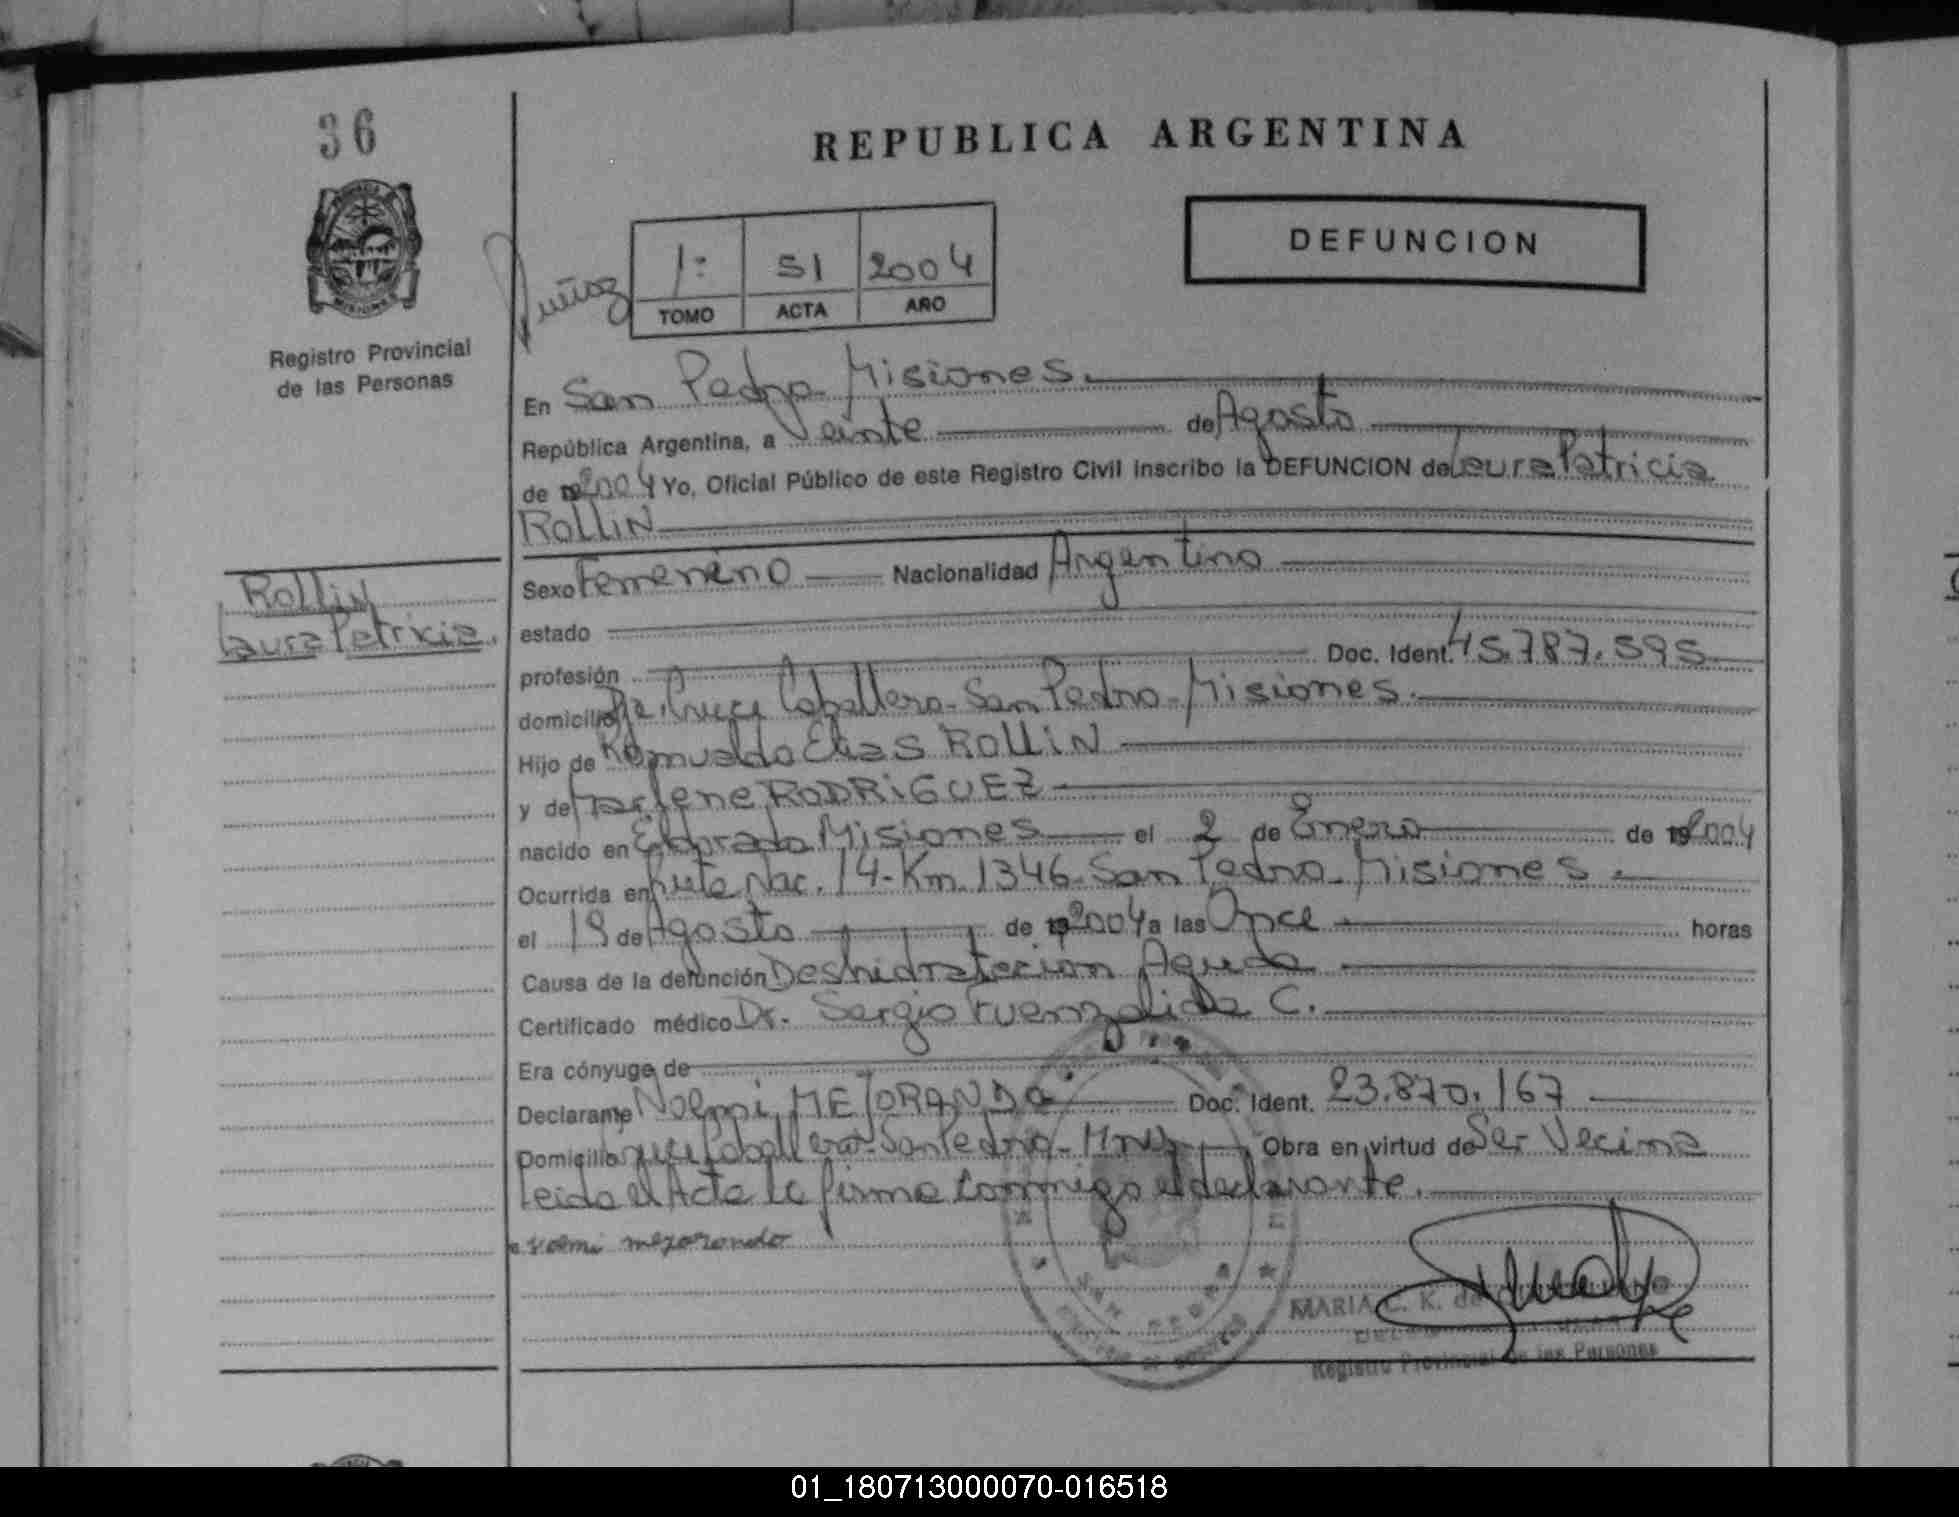 36
REPUBLICA ARGENTINA
DEFUNCION
1: 51 2004
TOMO ACTA AÑO
Registro Provincial
de las Personas
En San Pedro Misiones.
República Argentina, a Veinte de Agosto
de 2004 Yo, Oficial Público de este Registro Civil inscribo la DEFUNCION de Laura Patricia
ROLLIN
Rollin
Laura Patricia.
Sexo Femenino Nacionalidad Argentina
estado
profesión Doc. Ident. 45.787.595
domicilio Cruce Caballero - San Pedro - Misiones.
Hijo de Romualdo Elias ROLLIN
y de Marlene RODRIGUEZ
nacido en Eldorado Misiones el 2 de Enero de 2004
Ocurrida en Ruta Nac. 14 - Km. 1346 - San Pedro - Misiones.
el 19 de Agosto de 2004 a las Once horas
Causa de la defunción Deshidratacion Aguda
Certificado médico Dr. Sergio Fuenzalida C.
Era cónyuge de
Declarante Noemi MEJORANDO Doc. Ident. 23.870.167
Domicilio Cruce Caballero - San Pedro - Mnes Obra en virtud de Ser Vecina
Leida el Acta la firma conmigo el declarante.
noemi mejorando
MARIA C. K. de
SAN PEDRO
Registro Provincial de las Personas
01_180713000070-016518